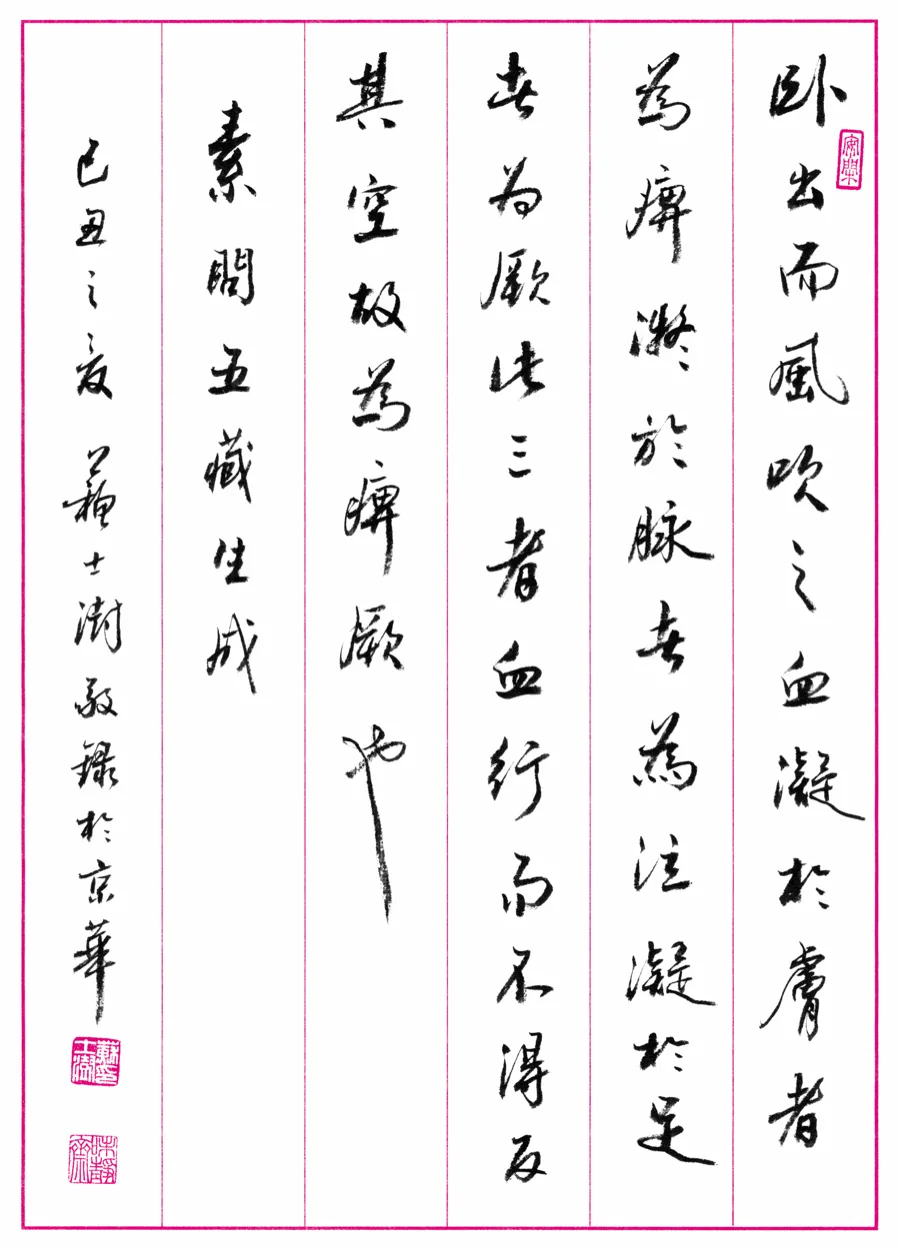 臥出而風吹之血凝於膚者
為痹凝於脉者為泣凝於足
者为厥此三者血行而不得反
其空故為痹厥也
素問五藏生成
己丑之夏 蘇士澍敬録於京華
蘇士澍印